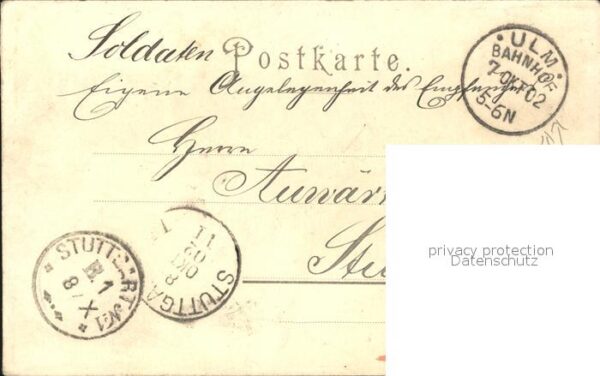 Soldaten Postkarte.
Eigene Angelegenheit des Empfängers
Herrn
Auwär
Stu
ULM
BAHNHOF
7 OKT 02
5-6N
STUTTGA
8
OKT
02
11
STUTTGART No 1
1
8/X
privacy protection
Datenschutz